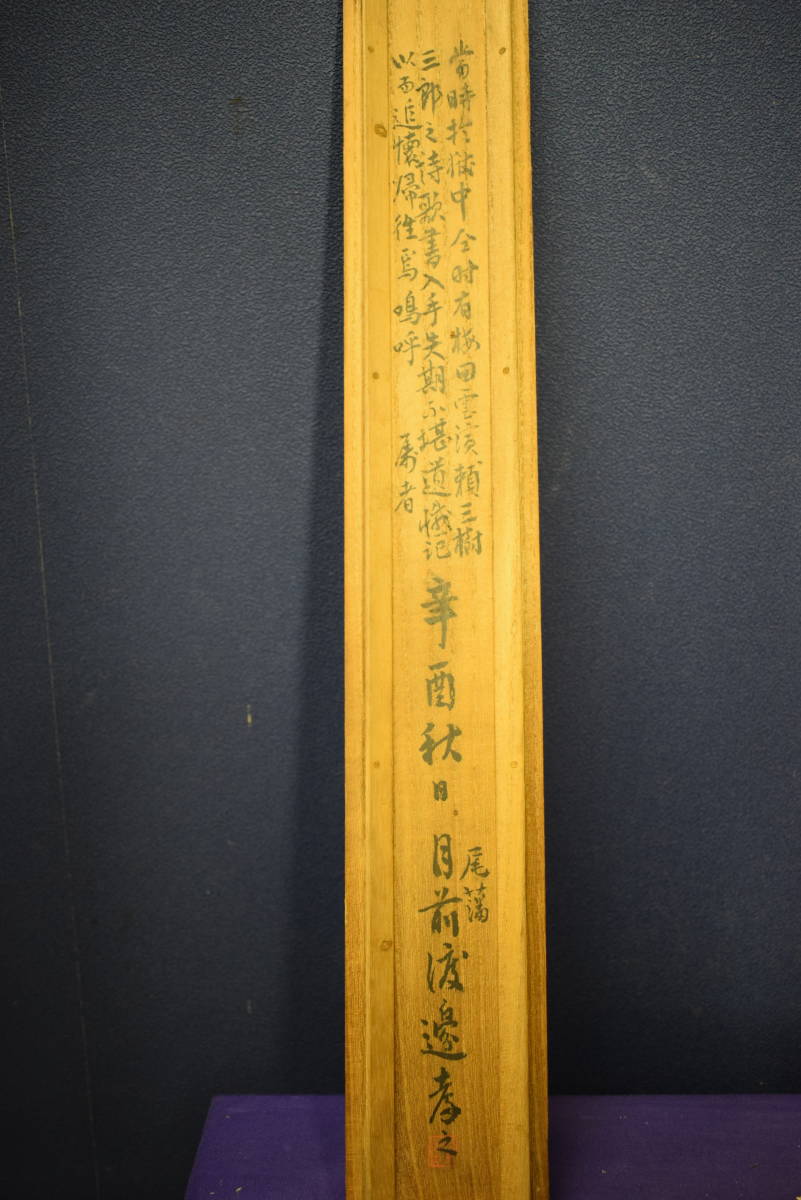 當時於獄中仝時有梅田雲濱賴三樹
三郎之詩歌書入手失期不堪遺憾記
以而追懷帰徃焉嗚呼 者
辛酉秋日
尾藩
月前渡邊孝之